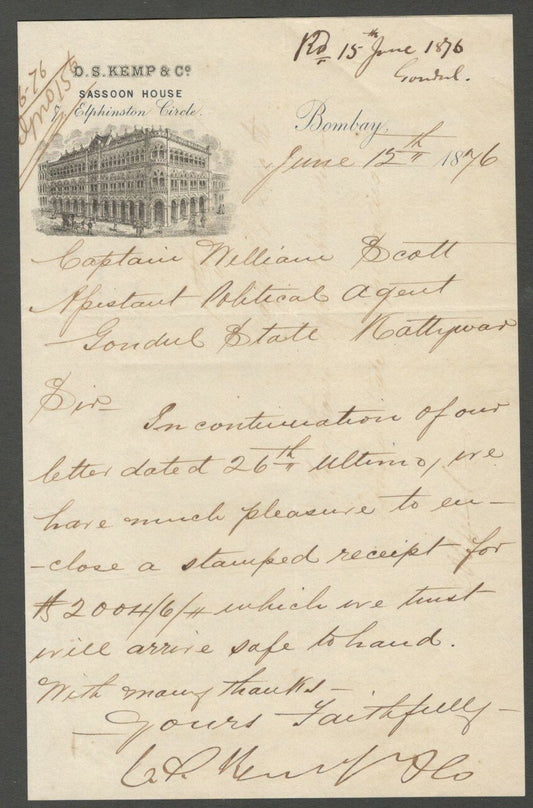 Rd 15th June 1876
Gondul.
D. S. KEMP & Co
SASSOON HOUSE
Elphinston Circle.
Bombay,
June 12th 1876
Captain William Scott
Assistant Political Agent
Gondul State Kattywar
Sir—
In continuation of our
letter dated 26th Ultimo, we
have much pleasure to en-
-close a stamped receipt for
Rs 2004/6/4 which we trust
will arrive safe to hand.
With many thanks—
Yours Faithfully—
D S Kemp & Co